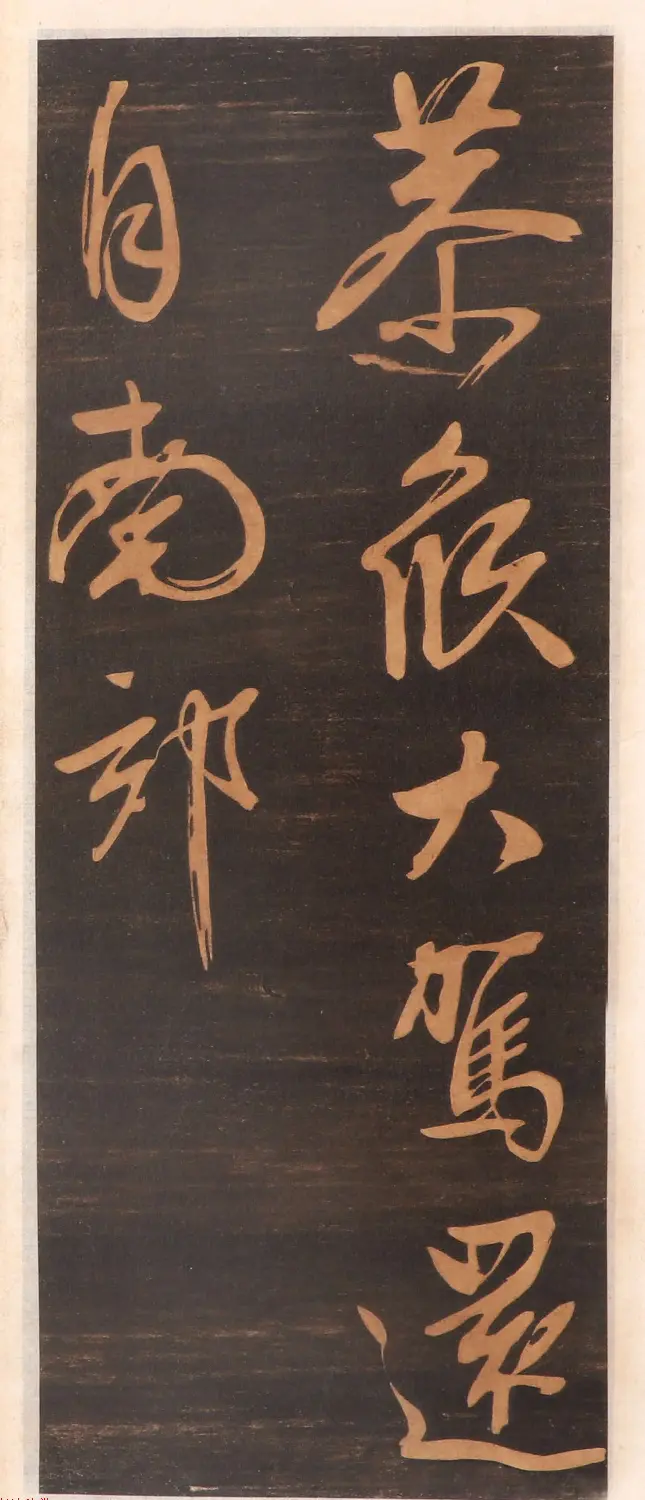 恭候大駕還
自南郊